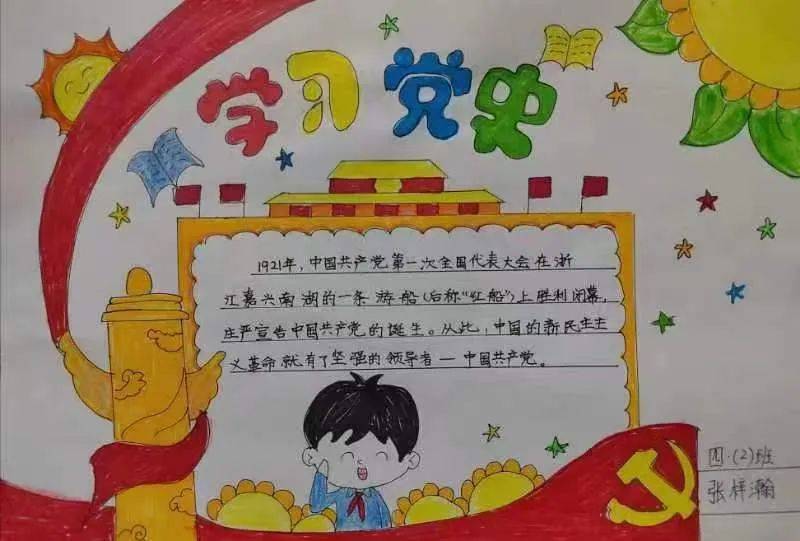 学习党史
1921年，中国共产党第一次全国代表大会在浙
江嘉兴南湖的一条游船（后称“红船”）上胜利闭幕，
庄严宣告中国共产党的诞生。从此，中国的新民主主
义革命就有了坚强的领导者—中国共产党。
四·(2)班
张梓瀚